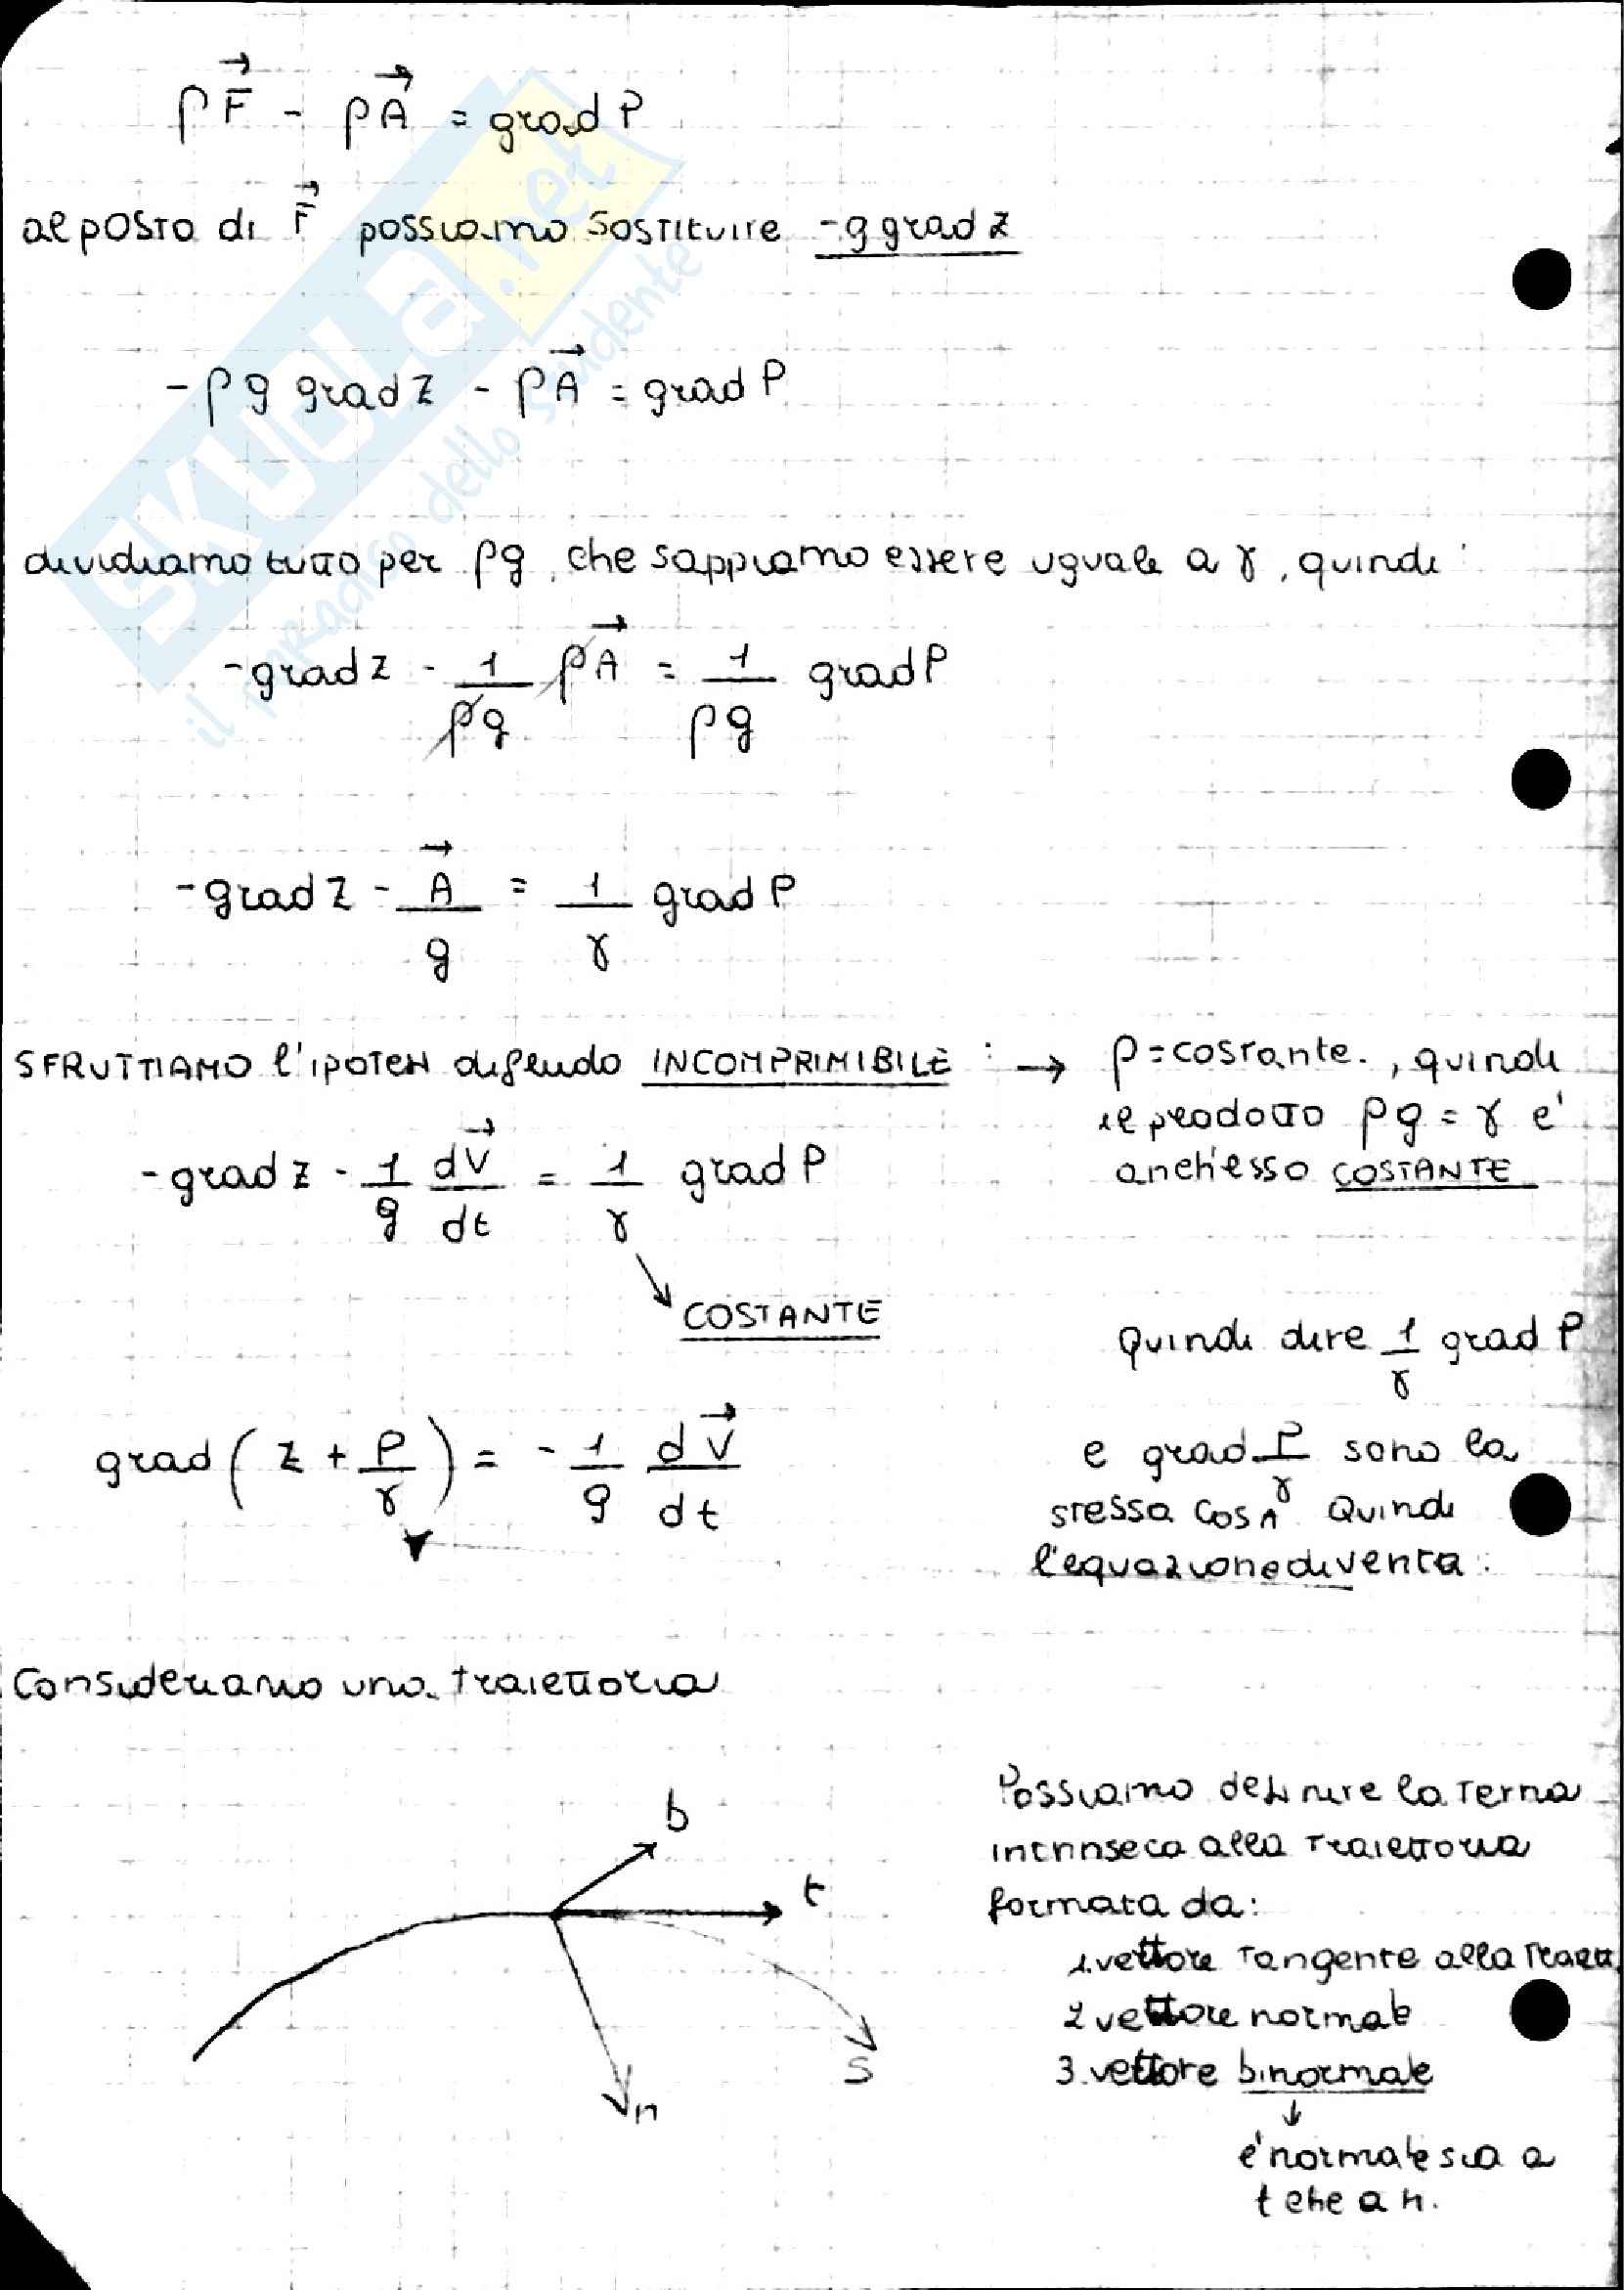 ρF⃗ - ρA⃗ = grad P
al posto di F⃗ possiamo sostituire -g grad z
-ρg grad z - ρA⃗ = grad P
dividiamo tutto per ρg, che sappiamo essere uguale a γ, quindi:
-grad z - 1/ρg ρA⃗ = 1/ρg grad P
-grad z - A⃗/g = 1/γ grad P
SFRUTTIAMO l'ipotesi di fluido INCOMPRIMIBILE : → ρ = costante., quindi
il prodotto ρg = γ e'
anch'esso COSTANTE
-grad z - 1/g dV⃗/dt = 1/γ grad P
COSTANTE
Quindi dire 1/γ grad P
e grad P/γ sono la
stessa cosa Quindi
l'equazione diventa:
grad (z + P/γ) = - 1/g dV⃗/dt
Consideriamo una traiettoria
b
t
S
n
Possiamo definire la terna
intrinseca alla traiettoria
formata da:
1. vettore tangente alla traiett.
2 vettore normale
3. vettore binormale
↓
é normale sia a
t che a n.
SKUOLA.net
il paradiso dello studente